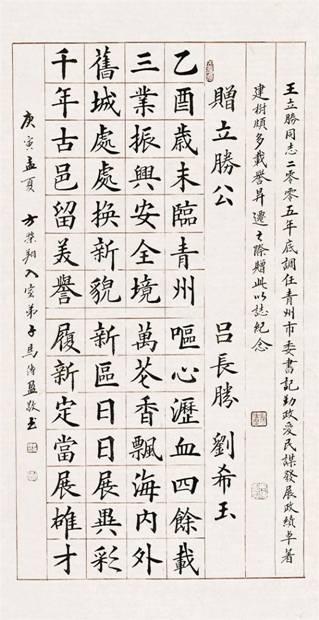 王立勝同志二零零五年底調任青州市委書記勤政愛民謀發展政績卓著
建樹頗多載譽昇遷之際贈此以誌紀念
贈立勝公 吕長勝 劉希玉
乙酉歲末臨青州 嘔心瀝血四餘載
三業振興安全境 萬苍香飄海内外
舊城處處换新貌 新區日日展異彩
千年古邑留美譽 履新定當展雄才
庚寅孟夏 方榮翔入室弟子馬 盈敬书